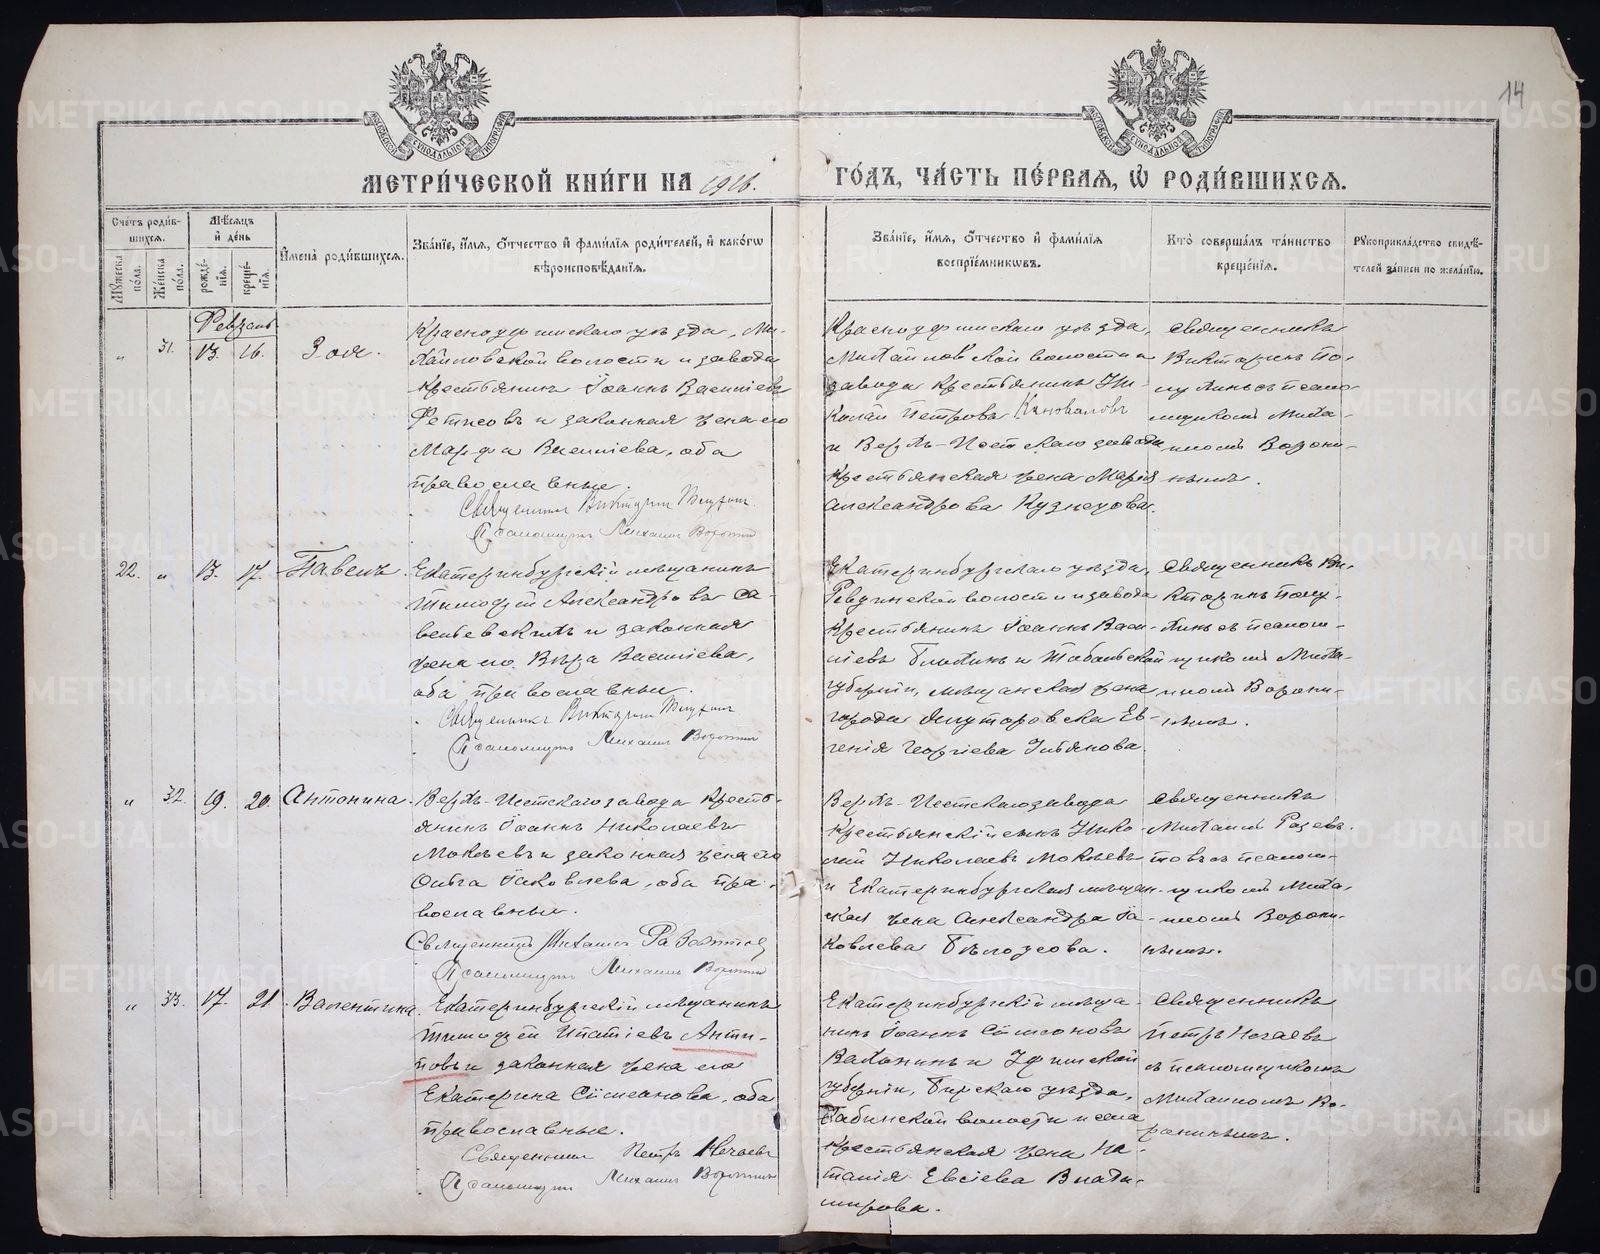 14
МЕТРИ́ЧЕСКОЙ КНИ́ГИ НА 1916.
ГО́ДЪ, ЧА́СТЬ ПЕ́РВАЯ, Ѡ РОДИ́ВШИХСЯ.
Сче́тъ роди́в-
шихся.
Мѣ́сяцъ
и де́нь
Му́жеска по́ла.
Же́нска по́ла.
рожде́нїя.
креще́нїя.
И́мена роди́вшихся.
Зва́нїе, и́мя, ѻ́тчество и фами́лїя роди́телей, и како́гѡ
вѣроисповѣ́данїя.
Зва́нїе, и́мя, ѻ́тчество и фами́лїя
воспрїе́мникѡвъ.
Кто̀ соверша́лъ та́инство
креще́нїя.
Рꙋкоприкла́дство свидѣ́-
телей за́писи по жела́нїю.
Февраль
„ 31. 13. 16. Зоя.
Красноуфимскаго уѣзда, Ми-
хайловской волости и завода
крестьянинъ Іоаннъ Васильевъ
Фетисовъ и законная жена его
Марфа Василіева, оба
православные.
Священникъ Викторинъ
Псаломщикъ Михаилъ Воронин
Красноуфимскаго уѣзда,
Михайловской волости и
завода крестьянинъ Ни-
колай Петровъ Коноваловъ
и Верхъ-Исетскаго завода
крестьянская жена Марія
Александрова Кузнецова.
Священникъ
Викторинъ По-
лу хинъ съ псало-
мщикомъ Миха-
иломъ Ворони-
нымъ.
22. „ 13. 17. Павелъ.
Екатеринбургскій мѣщанинъ
Тимофей Александровъ Са-
вельевскихъ и законная
жена его Вѣра Василіева,
оба православные.
Священникъ Викторинъ
Псаломщикъ Михаилъ Воронин
Екатеринбургскаго уѣзда,
Ревдинской волости и завода
крестьянинъ Іоаннъ Васи-
ліевъ и Тобольской
губерніи, мѣщанская жена
города Ялуторовска Ев-
генія Георгіева
Священникъ Ви-
кторинъ Полу-
хинъ съ псалом-
щикомъ Миха-
иломъ Ворони-
нымъ.
„ 32. 19. 20. Антонина.
Верхъ-Исетскаго завода кресть-
янинъ Іоаннъ Николаевъ
Мокѣевъ и законная жена его
Ольга Іаковлева, оба пра-
вославные.
Священникъ Михаилъ
Псаломщикъ Михаилъ Воронин
Верхъ-Исетскаго завода
крестьянскій сынъ Нико-
лай Николаевъ Мокѣевъ
и Екатеринбургская мѣщан-
ская жена Александра Іа-
ковлева Бѣлоусова.
Священникъ
Михаилъ
товъ съ псалом-
щикомъ Миха-
иломъ Ворони-
нымъ.
„ 33. 17. 21. Валентина.
Екатеринбургскій мѣщанинъ
Тимофей Ипатіевъ Анти-
повъ и законная жена его
Екатерина Сімеонова, оба
православные.
Священникъ Петръ Нечаевъ
Псаломщикъ Михаилъ Воронин
Екатеринбургскій мѣща-
нинъ Іоаннъ Сімеоновъ
Вахонинъ и Уфимской
губерніи, Бирскаго уѣзда,
волости и села
крестьянская жена На-
талія Евсіева Влади-
мирова.
Священникъ
Петръ Нечаевъ
съ псаломщикомъ
Михаиломъ Во-
ронинымъ.
METRIKI.GASO-URAL.RU